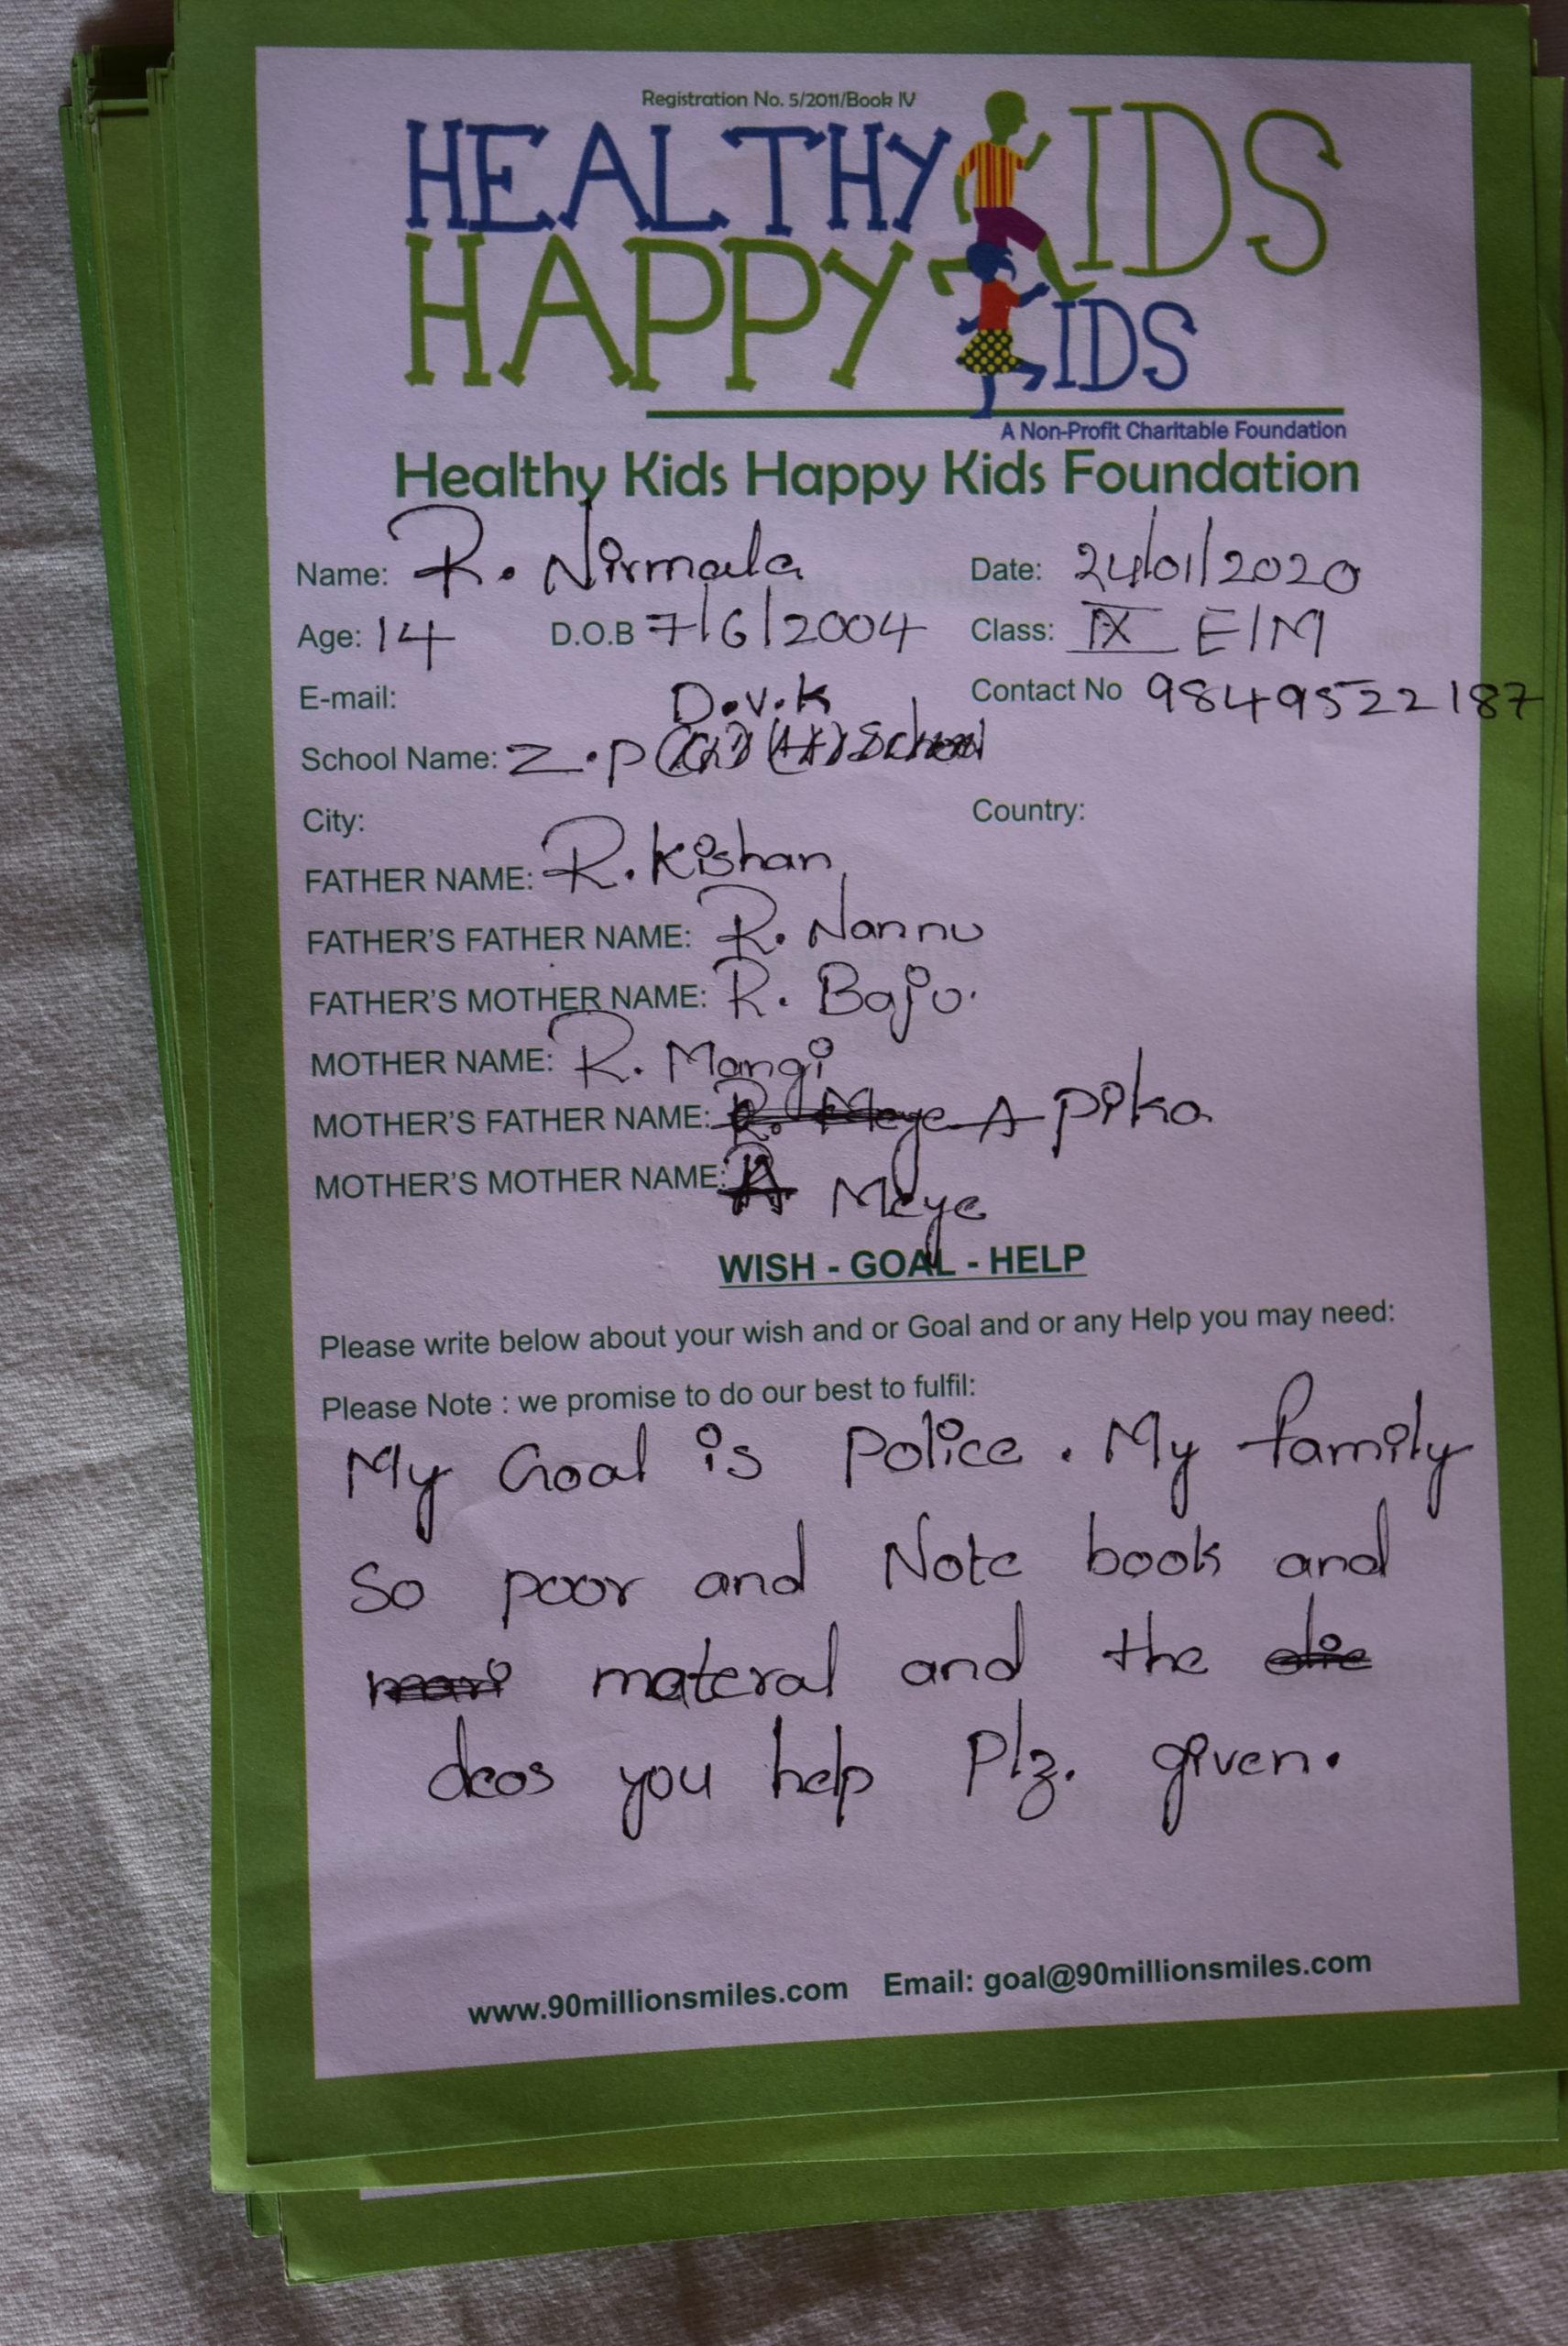 Registration No. 5/2011/Book IV
HEALTHY KIDS
HAPPY KIDS
A Non-Profit Charitable Foundation
Healthy Kids Happy Kids Foundation
Name: R. Nirmala Date: 24/01/2020
Age: 14 D.O.B 7/6/2004 Class: IX E/M
E-mail: Contact No 9849522187
D.V.K
School Name: Z.P School
City: Country:
FATHER NAME: R. Kishan
FATHER'S FATHER NAME: R. Nannu
FATHER'S MOTHER NAME: R. Baju.
MOTHER NAME: R. Mangi
MOTHER'S FATHER NAME: R. Meye A Pika
MOTHER'S MOTHER NAME: Meye
WISH - GOAL - HELP
Please write below about your wish and or Goal and or any Help you may need:
Please Note : we promise to do our best to fulfil:
My Goal is Police. My family
So poor and Note book and
materal and the
deos you help Plz. given.
www.90millionsmiles.com Email: goal@90millionsmiles.com